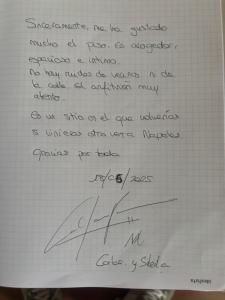 Sinceramente, me ha gustado
mucho el piso. Es acogedor,
espacioso e íntimo.
No hay ruidos de vecinos ni de
la calle. El anfitrión muy
atento.
Es un sitio al que volverías
si vinieras otra vez a Napoles
Gracias por todo
18/05/2025
y Sheila
idealista